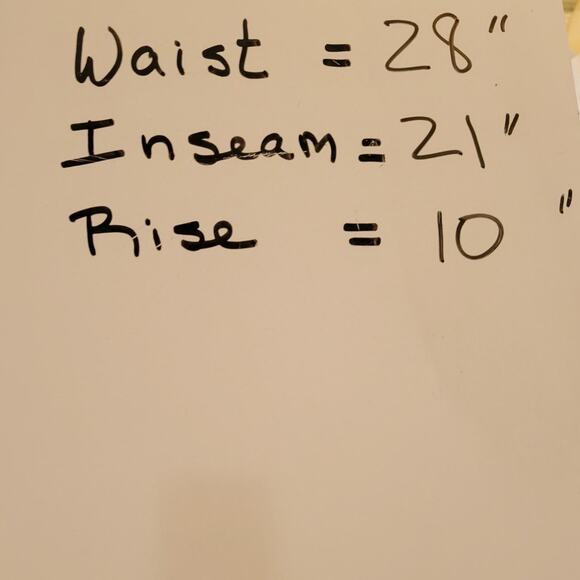 Waist = 28"
Inseam = 21"
Rise = 10"